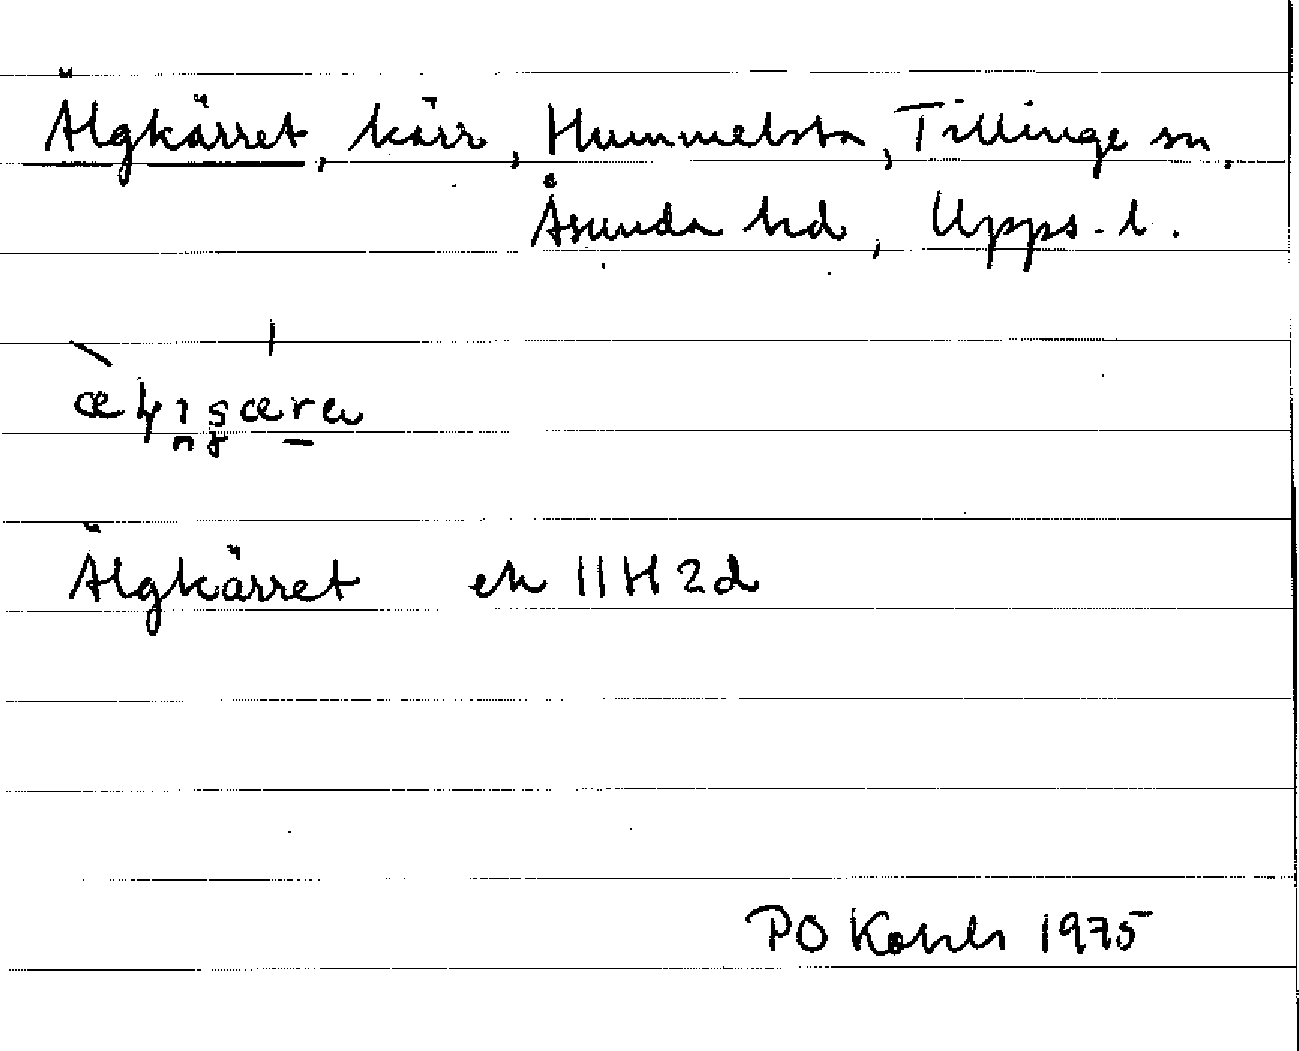 Älgkärret, kärr, Hummelsta, Tillinge sn.
Åsunda hd, Upps. l.
Älgkärret ek 11H 2d
PO 1975